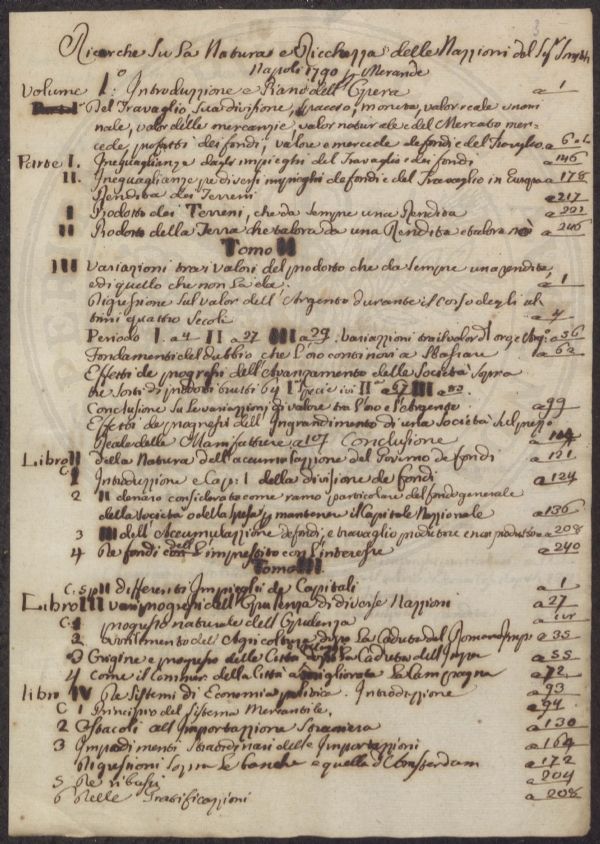 Ricerche Su La Natura e Ricchezza delle Nazzioni del Sigr Smith
Napoli 1790 p Merande
Volume I.º Introduzzione e Piano dell'Opera a 1
Del Travaglio sua divisione, prezzo, moneta, valor reale e nomi
nale, valor delle mercanzie, valor naturale e del Mercato mer-
cede, profitti dei fondi, valore e mercede de fondi e del Travaglio a 6
Parte I. Ineguaglianze dagl'impieghi del Travaglio e dei fondi a 146
II. Ineguaglianze pe diversi impieghi de fondi e del Travaglio in Europa a 178
Rendita dei Terreni a 217
I Prodotto dei Terreni, che da sempre una Rendita a 222
II Prodotto della Terra che talora da una Rendita e talora nò a 246
Tomo II
III Variazioni tra i valori del prodotto che da sempre una rendita,
e di quello che non la da. a 1
Digressione sul valor dell'Argento durante il Corso degli ul
timi quattro secoli a 4
Periodo I. a 4 II a 27 III a 29. Variazzioni tra il valor d'oro e Argo a 56
Fondamenti del dubbio che l'oro continovi a sbassare a 62
Effetti de progressi dell'Avanzamento della Società sopra
tre sorti di prodotti brutti 64 Iª specie ivi IIª a 67 III a 82.
Conclusione su le variazzioni di valore tra l'oro e l'argento a 99
Effetti de progressi dell'Ingrandimento di una Società sul prezzo
Reale delle Manifatture a 107 Conclusione a
Libro II della Natura dell'accumolazione del Governo de fondi a 121
C. 1 Introduzzione e Cap: I della divisione de fondi a 124
2 Il denaro considerato come ramo particolare del fondo generale
della Società o della spesa p mantenere il Capitale Nazzionale a 136
3 III dell'Accumulazzione de fondi, e travaglio produttore e non produttore a 208
4 De fondi dell'impresto con l'interesse a 240
Tomo III
C. 5 differenti Impieghi de Capitali a 1
Libro III varj progressi dell'Opulenza di diverse Nazzioni a 27
C. 1 progresso naturale dell'Opulenza a ivi
2 avvilimento dell'Agricoltura dopo la Caduta del Romano Impo a 35
3 Origine e progresso delle Città dopo la Caduta dell'Impo a 55
4 Come il commer. della Città migliorata la Campagna a 72
Libro IV De Sistemi di Economia politica. Introduzzione a 93
C 1 Principio del sistema Mercantile. a 94
2 Ostacoli all'Importazzione Straniera a 130
3 Impedimenti straordinari delle Importazzioni a 164
Digressioni sopra le banche e quella d'Amsterdam a 172
5 De ribassi a 204
6 Delle Tratificazzioni a 208